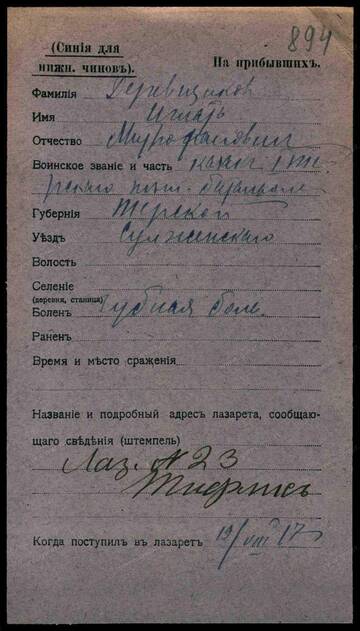 894
(Синія для
нижн. чиновъ).
На прибывшихъ.
Фамилія Деревщиков
Имя Игнатъ
Отчество Митрофанович
Воинское званіе и часть казак 1 Те
рскаго баталіо
Губернія Терской
Уѣздъ Сунженскаго
Волость
Селеніе
(деревня, станица)
Боленъ Зубная боль.
Раненъ
Время и мѣсто сраженія
Названіе и подробный адресъ лазарета, сообщаю-
щаго свѣдѣнія (штемпель)
Лаз. № 23
Тифлисъ
Когда поступилъ в лазаретъ 19/VIII 17